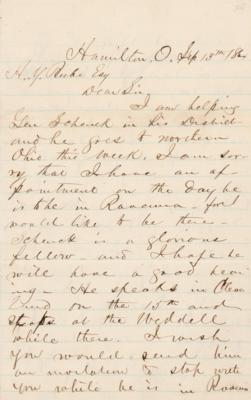 Hamilton, O. Sep 13th 186
H. Y. Beebe Esq
Dear Sir,
I am helping
Gen Schenck in his District
and he goes to northern
Ohio this week. I am sor-
ry that I have an ap-
pointment on the day he
is to be in Ravenna - for I
would like to be there -
Schenck is a glorious
fellow - and I hope he
will have a good hear-
ing - He speaks in Cleve
land on the 15th and
stops at the Weddell
while there. I wish
you would send him
an invitation to stop with
you while he is in Ravenna